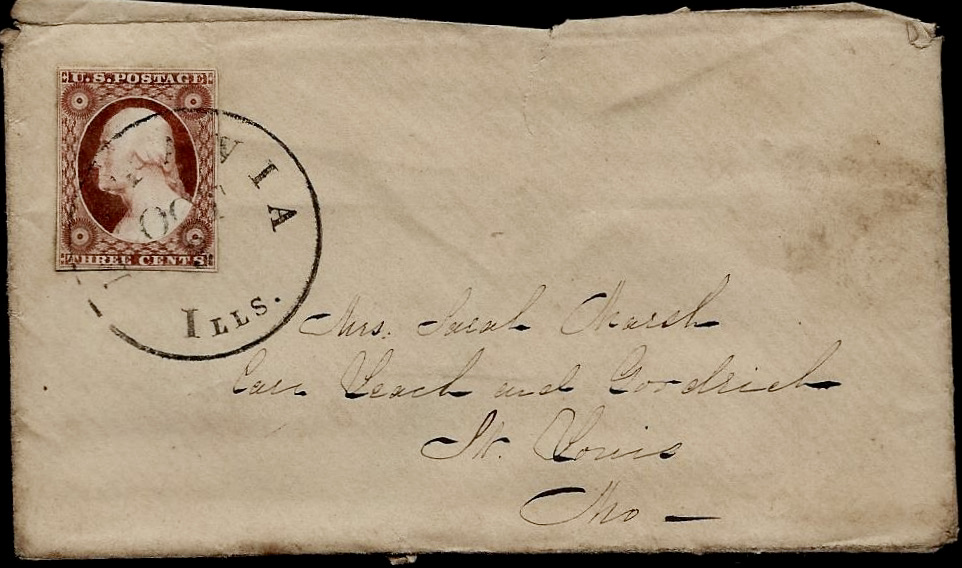 U.S. POSTAGE
THREE CENTS
OCT
ILLS.
Mrs. Sarah Marsh
Care Leach and Goodrich
St. Louis
Mo